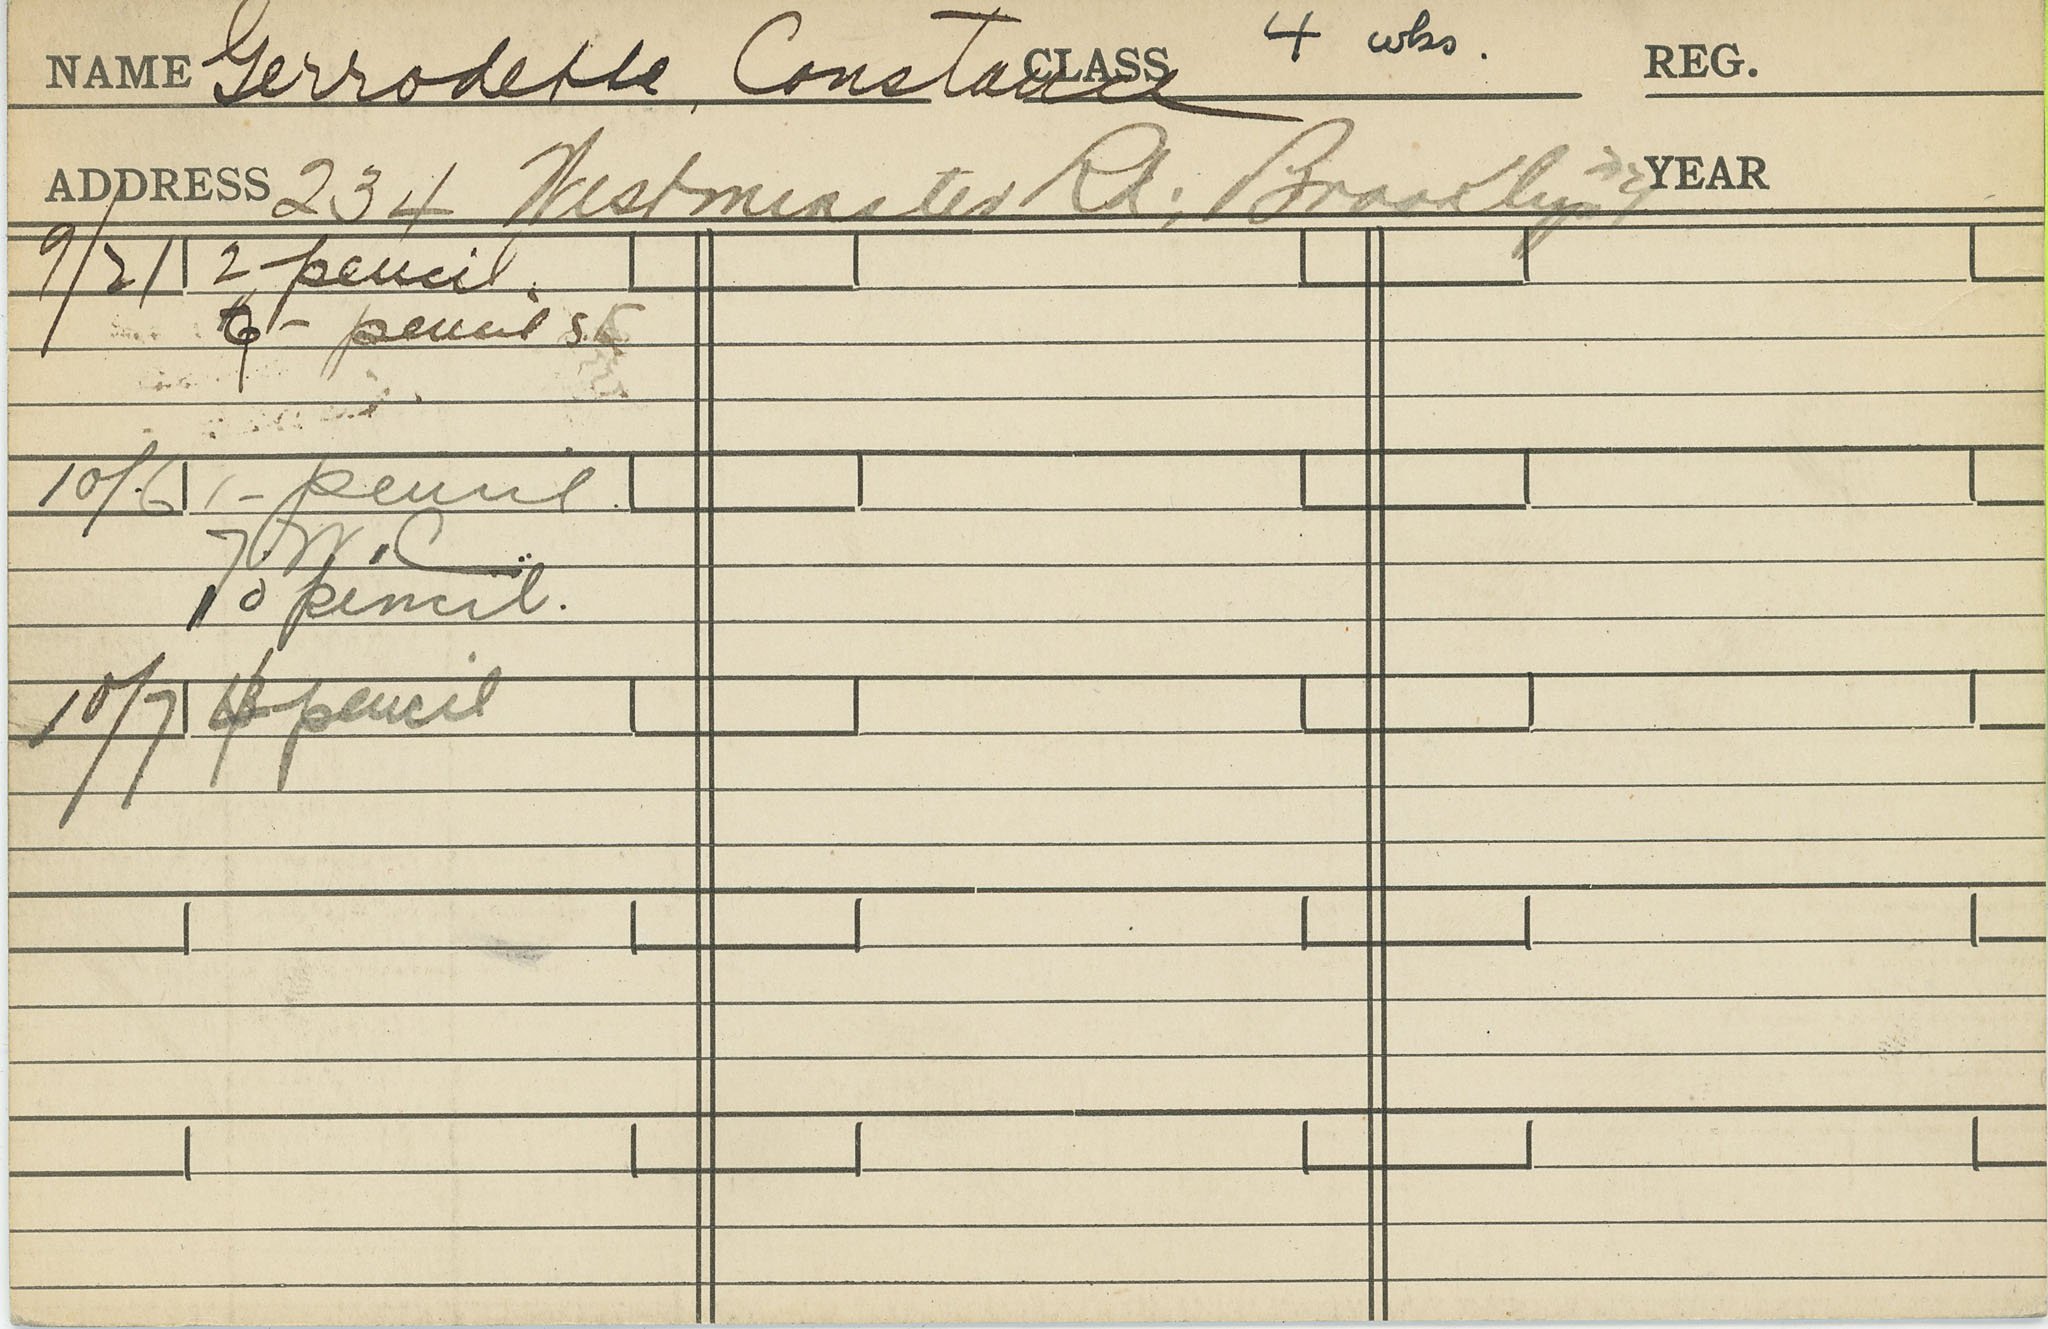 NAME Gerrodette, Constance CLASS 4 wks. REG.
ADDRESS 234 Westminster Rd; Brooklyn NY YEAR
9/21 2-pencil.
6- pencil s.
10/6 1- pencil.
7 W.C
10 pencil.
10/7 4-pencil